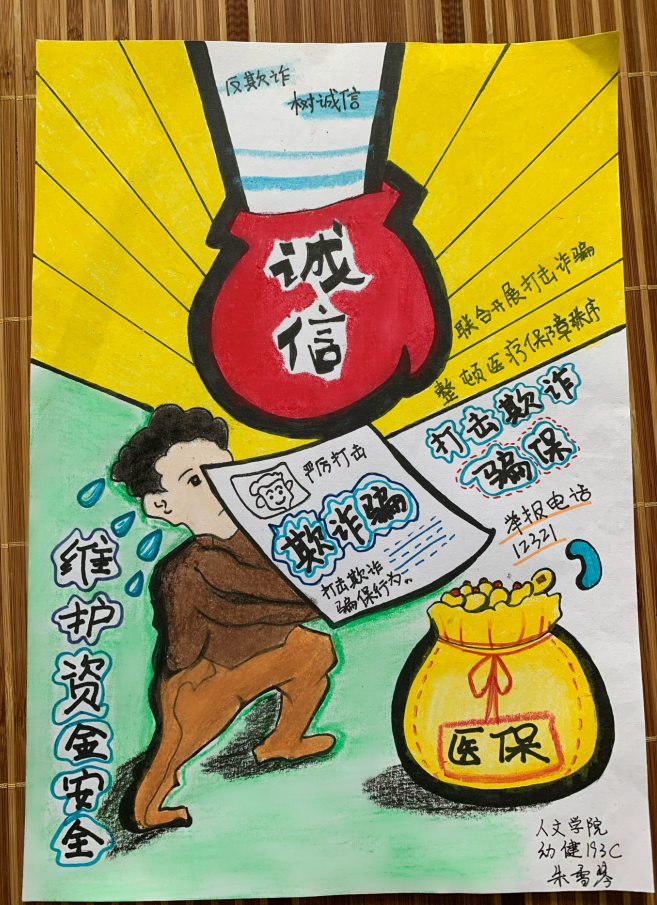 反欺诈
树诚信
诚
信
联合开展打击诈骗
整顿医疗保障秩序
打击欺诈
骗保
举报电话
12321
严厉打击
欺诈骗
打击欺诈
骗保行为。
维护资金安全
医保
人文学院
幼健193C
朱雪琴